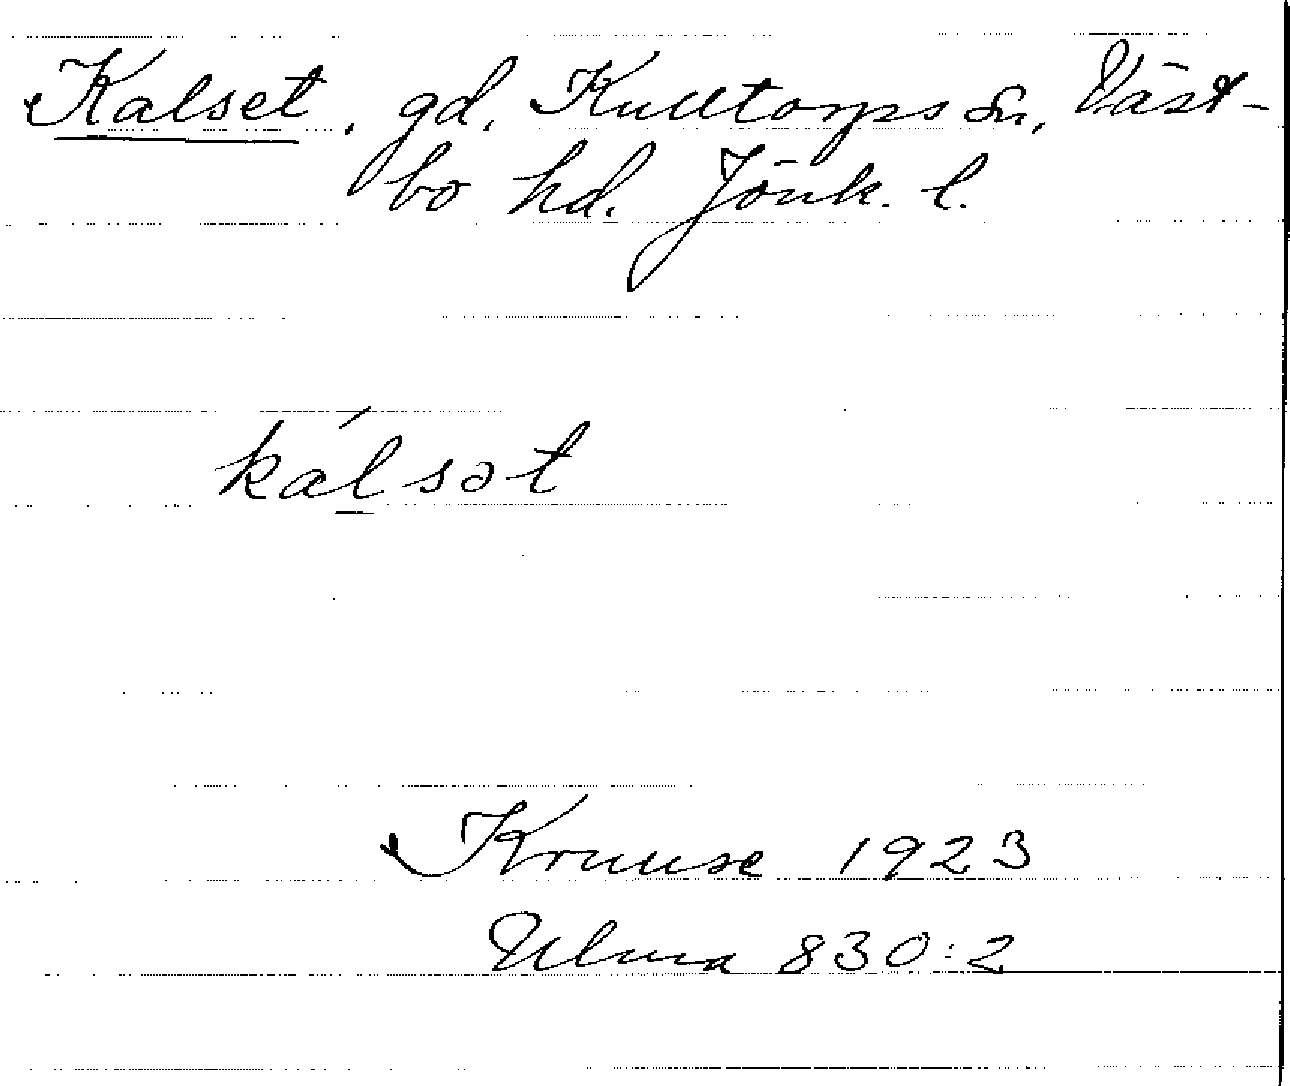 Kalset, gd, Kulltorps sn, Väst-
bo hd. Jönk. l.
kálsət
Kruuse 1923
Ulma 830:2